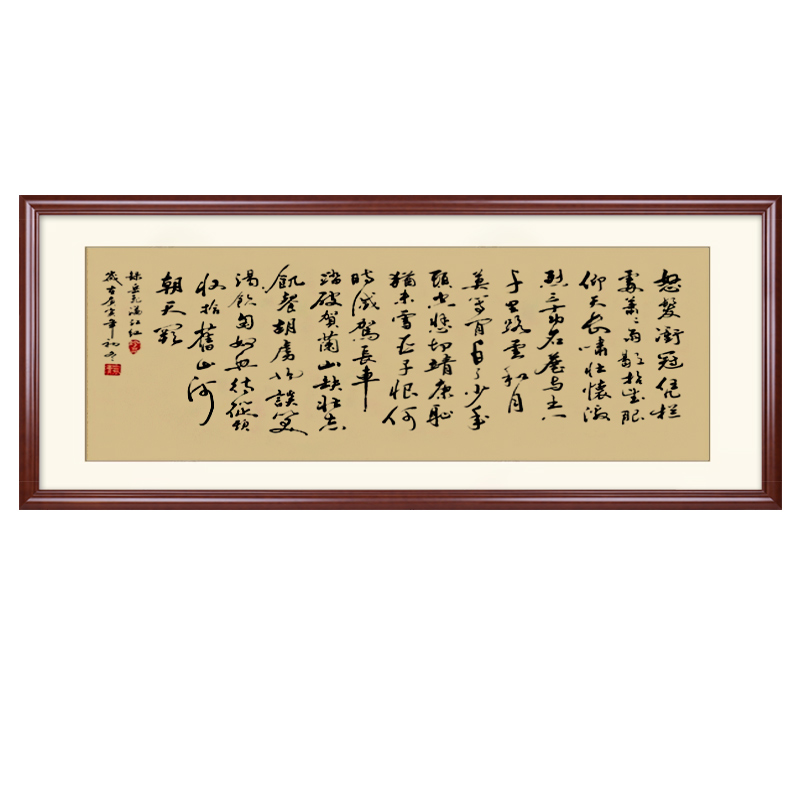 怒髮衝冠凭栏
處蕭〻雨歇抬望眼
仰天長嘯壯懷激
烈三十功名塵與土八
千里路雲和月
莫等閒白了少年
頭空悲切靖康恥
猶未雪臣子恨何
時滅駕長車
踏破賀蘭山缺壯志
飢餐胡虜肉談笑
渴飲匈奴血待從頭
收拾舊山河
朝天闕
錄岳飛滿江红
歲在庚寅年初冬